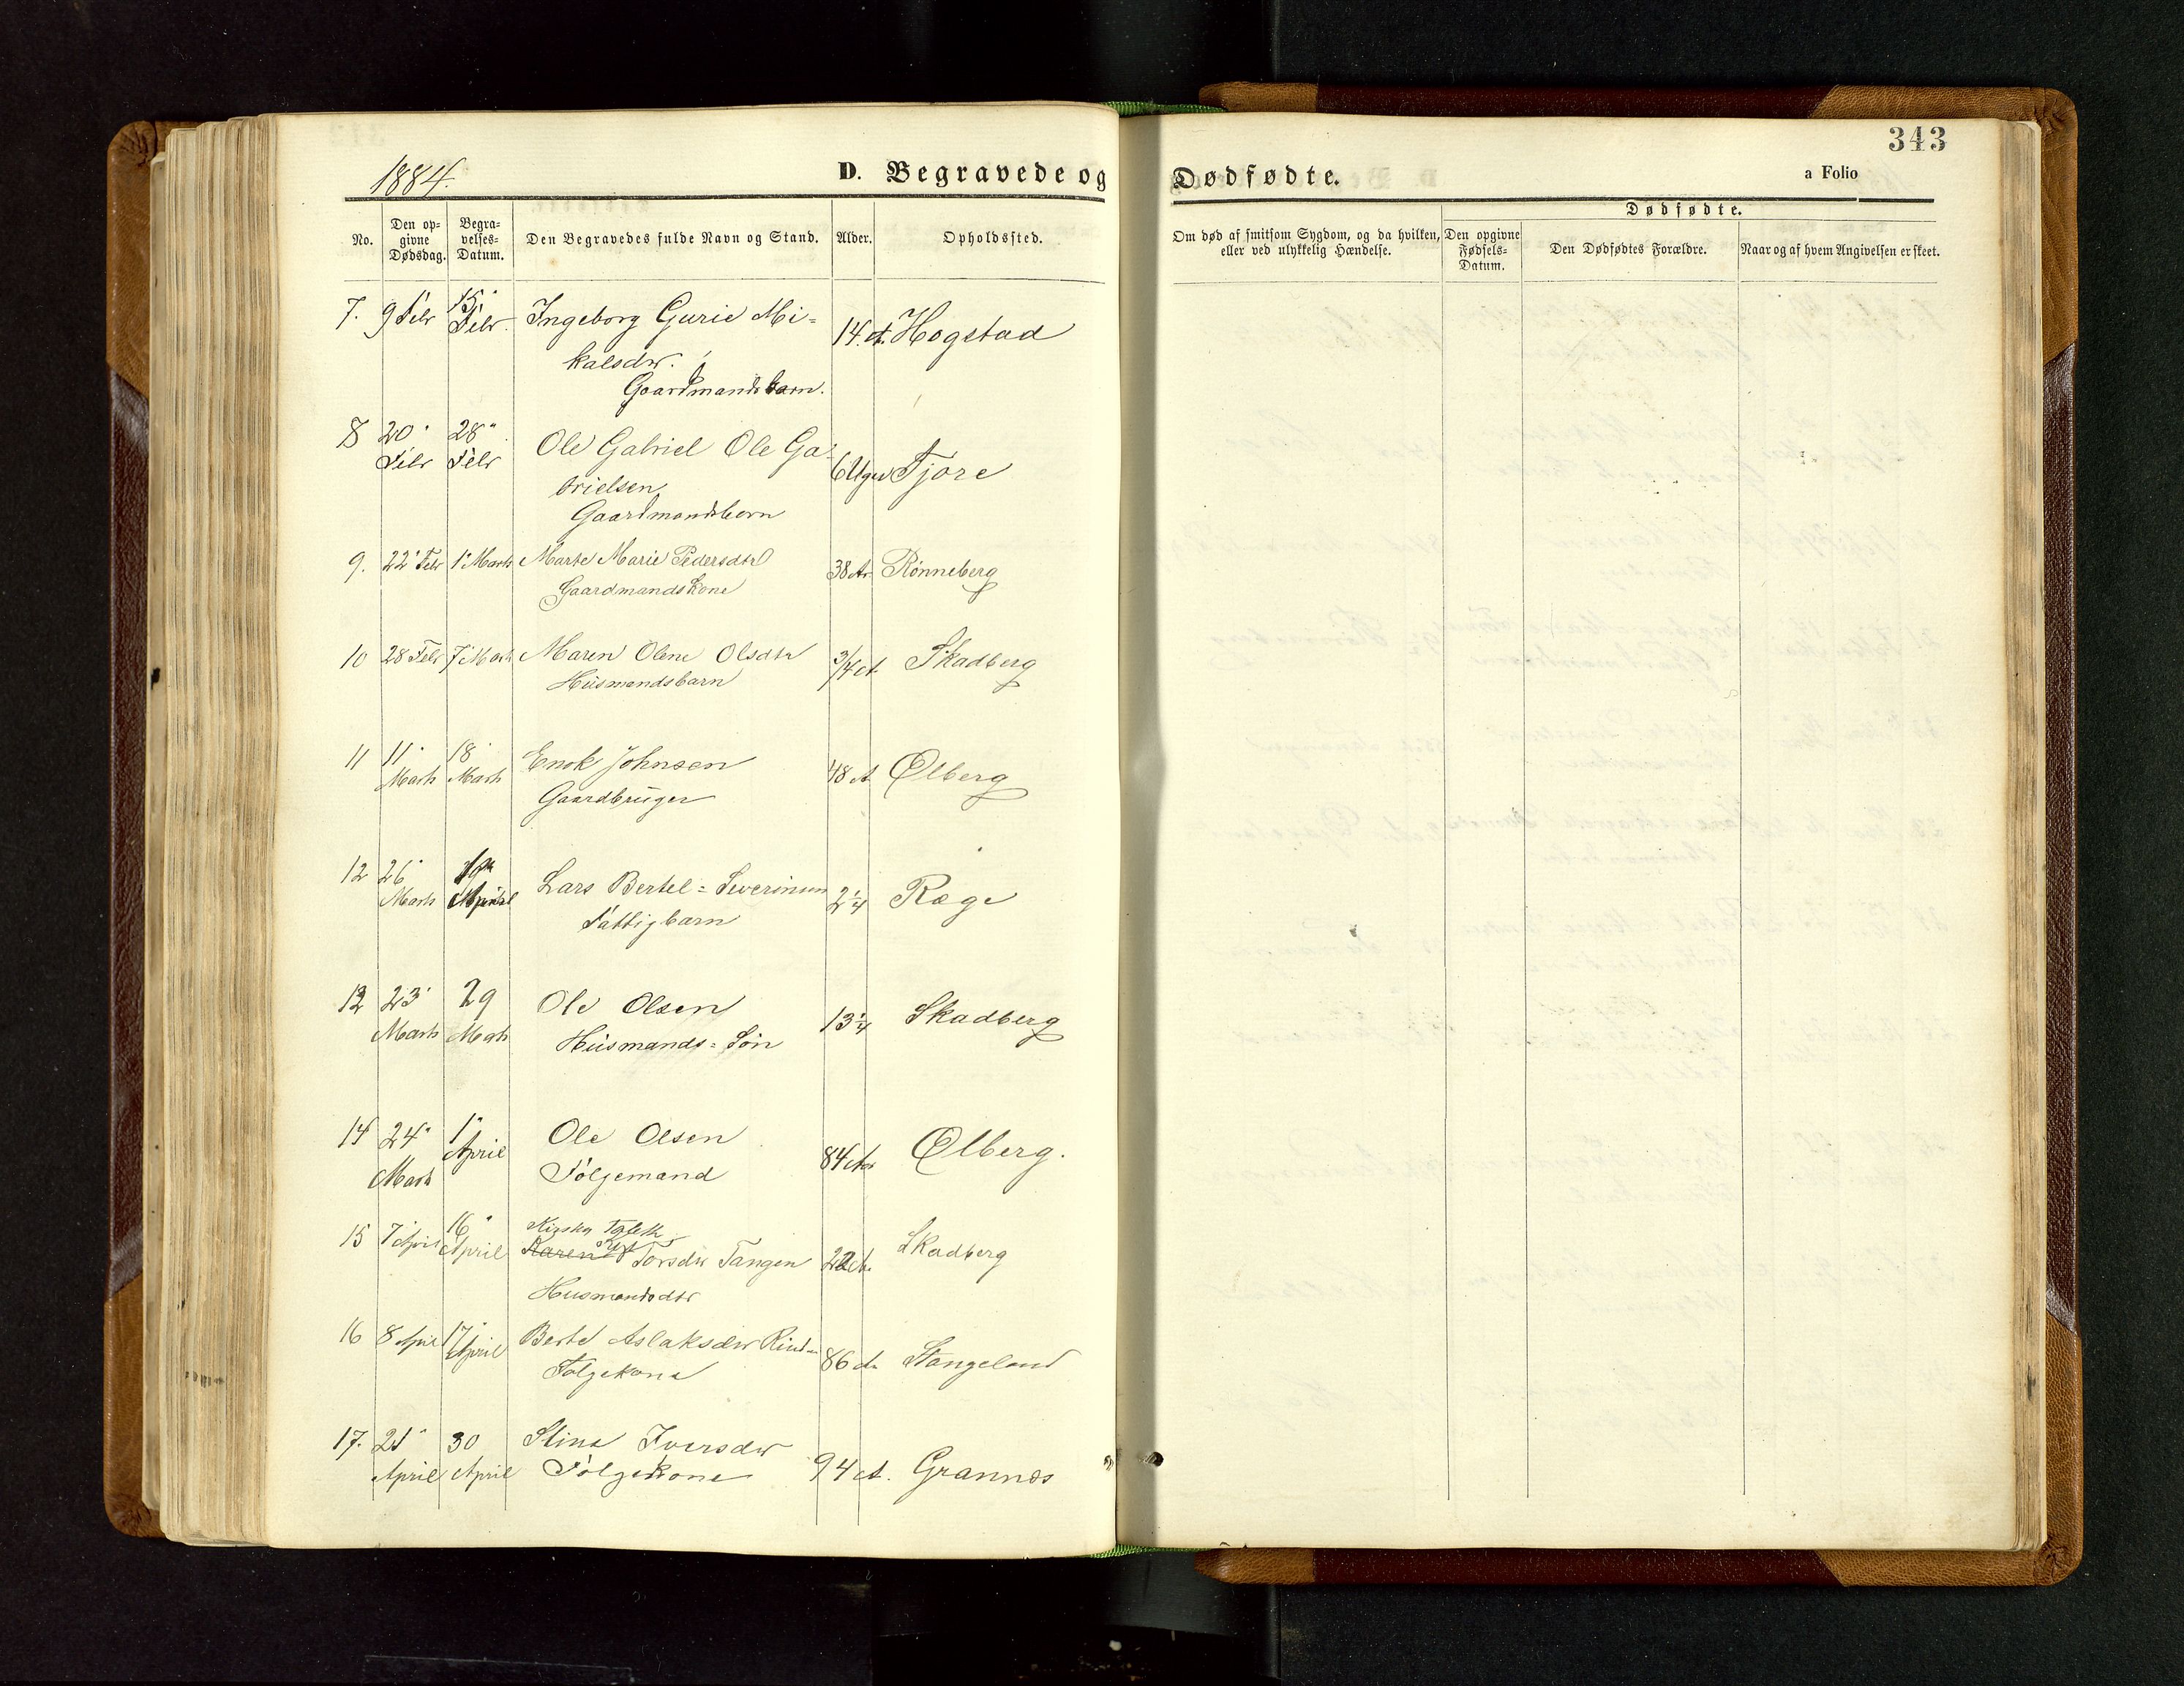 343
1884.
D. Begravede og
Dødfødte.
a Folio
No.
Den op-
givne
Dødsdag.
Begra-
velses-
Datum.
Den Begravedes fulde Navn og Stand.
Alder.
Opholdssted.
Om død af smitsom Sygdom, og da hvilken,
eller ved ulykkelig Hændelse.
Dødfødte.
Den opgivne
Fødsels-
Datum.
Den Dødfødtes Forældre.
Naar og af hvem Angivelsen er skeet.
7. 9 Febr 15' Febr. Ingeborg Gurie Mi=
kalsdtr.
Gaardmandsbarn.
14. A. Hogstad
8 20' Febr 28" Febr Ole Gabriel Ole Ga=
brielsen
Gaardmandsbarn
6 Uger Tjore
9. 22' Febr 1' Marts Marte Marie Pedersdtr
Gaardmandskone
38 Ar Rönneberg
10 28 Febr 7' Marts Maren Oline Olsdtr
Husmandsbarn
3/4 A. Skadberg
11 11' Marts 18' Marts Enok Johnsen
Gaardbruger
48 A Ølberg
12 26' Marts April Lars Bertel = Severinsen
Fattigbarn
2 1/4 Ræge
13 23' Marts 29 Marts Ole Olsen
Husmands = Søn
13 1/4 Skadberg
14 24" Marts 1" April Ole Olsen
Følgemand
84 Aar Ølberg.
15 7' April 16" April
Karen Torsdtr Tangen
Husmandsdtr
22 A. Skadberg
16 8 April 17' April Berte Aslaksdtr
Følgekone
86 A. Stangeland
17. 21' April 30 April Stina Iversdtr
Følgekone
94 A. Grannes